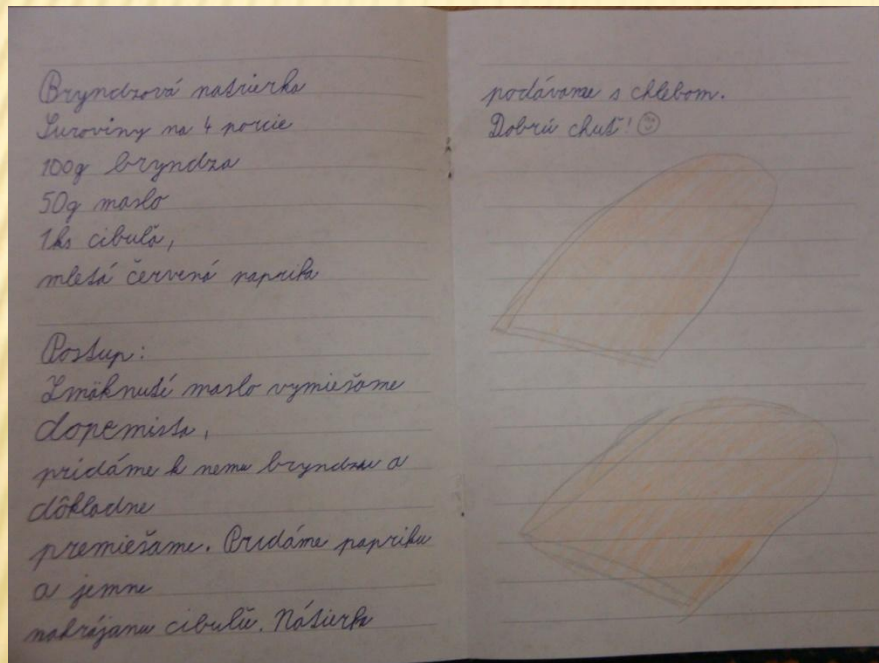 Bryndzová natierka
Suroviny na 4 porcie
100g bryndza
50g maslo
1ks cibuľa,
mletá červená paprika
Postup:
Zmäknuté maslo vymiešame
dopemista,
pridáme k nemu bryndzu a
dôkladne
premiešame. Pridáme papriku
a jemne
nakrájanu cibuľu. Nátierka
podávame s chlebom.
Dobrú chuť!